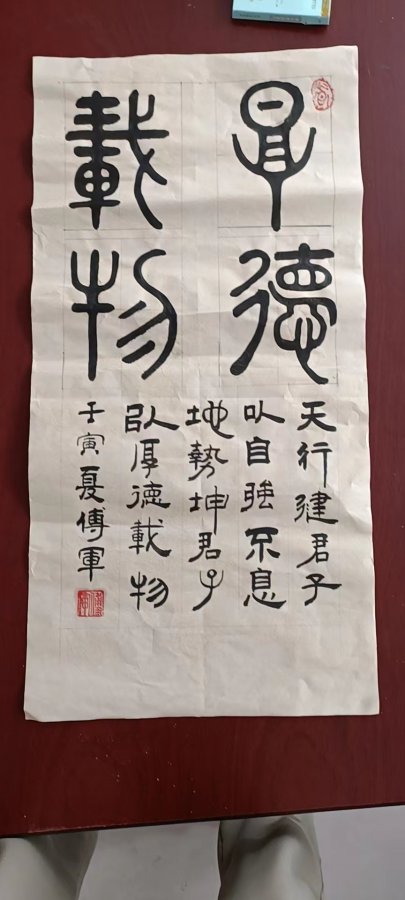 厚德
載物
天行健君子
以自強不息
地勢坤君子
以厚德載物
壬寅夏傅軍